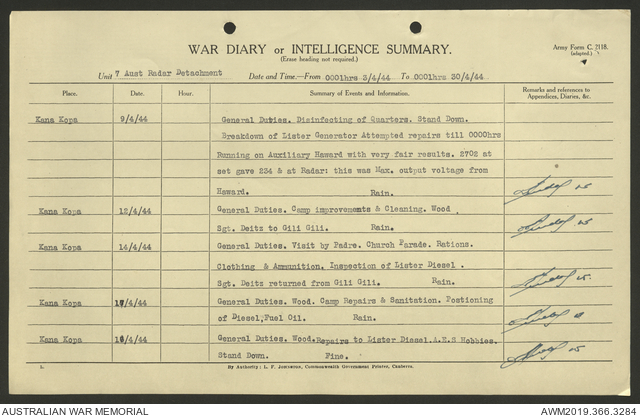 WAR DIARY or INTELLIGENCE SUMMARY.
(Erase heading not required.)
Army Form C. 2118.
(adapted.)
Unit 7 Aust Radar Detachment Date and Time.—From 0001hrs 3/4/44 To 0001hrs 30/4/44
Place. Date. Hour. Summary of Events and Information. Remarks and references to Appendices, Diaries, &c.
Kana Kopa 9/4/44 General Duties. Disinfecting of Quarters. Stand Down.
Breakdown of Lister Generator Attempted repairs till 0000hrs
Running on Auxiliary Haward with very fair results. 2702 at
set gave 234 & at Radar: this was Max. output voltage from
Haward. Rain.
Kana Kopa 12/4/44 General Duties. Camp improvements & Cleaning. Wood
Sgt. Deitz to Gili Gili. Rain.
Kana Kopa 14/4/44 General Duties. Visit by Padre. Church Parade. Rations.
Clothing & Ammunition. Inspection of Lister Diesel.
Sgt. Deitz returned from Gili Gili. Rain.
Kana Kopa /4/44 General Duties. Wood. Camp Repairs & Sanitation. Postioning
of Diesel, Fuel Oil. Rain.
Kana Kopa /4/44 General Duties. Wood. Repairs to Lister Diesel. A.E.S Hobbies.
Stand Down. Fine.
By Authority: L. F. Johnston, Commonwealth Government Printer, Canberra.
AUSTRALIAN WAR MEMORIAL AWM2019.366.3284